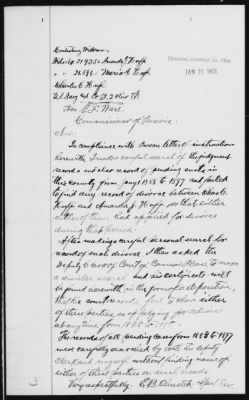 Contesting Widows
Amanda J. Huff
Maria A. Huff
Charles C. Huff
Hon. E. F. Ware
Commissioner of Pensions
JAN 15 1903
Sir,
In compliance with Bureau letter of instructions
herewith I made careful search of the judgment
records and also record of pending suits in
this county from 1888 to 1897 and failed
to find any record of divorce between Chas. C.
Huff and Amanda J. Huff or that either
either of them had applied for divorce
during that period.
After making careful personal search for
record of such divorce I then asked the
Deputy Clerk of Common Pleas to make
a similar search and his certificate will
be found herewith, in the form of a deposition,
that the court records fail to show either
of these parties as applying for divorce
at any time from 1888 to 1897
The records of all pending cases from 1888 to 1897
were carefully searched by both the deputy
clerk and myself without finding name of
either of these parties on such records
Very respectfully,
3